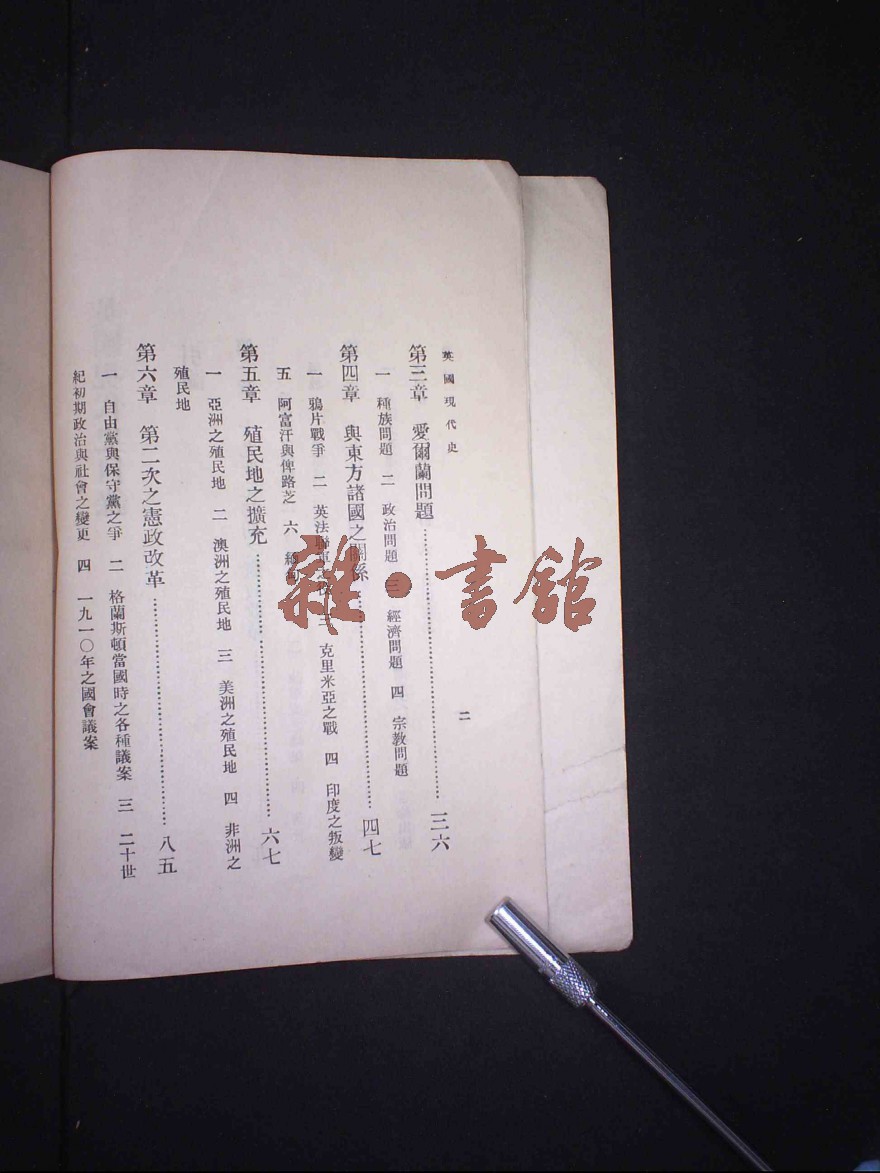 英國現代史
二
第三章 愛爾蘭問題……三六
一 種族問題 二 政治問題 三 經濟問題 四 宗教問題
第四章 與東方諸國之關係……四七
一 鴉片戰爭 二 英法聯軍 三 克里米亞之戰 四 印度之叛變
五 阿富汗與俾路芝 六 緬甸
第五章 殖民地之擴充……六七
一 亞洲之殖民地 二 澳洲之殖民地 三 美洲之殖民地 四 非洲之
殖民地
第六章 第二次之憲政改革……八五
一 自由黨與保守黨之爭 二 格蘭斯頓當國時之各種議案 三 二十世
紀初期政治與社會之變更 四 一九一〇年之國會議案
雜·書館